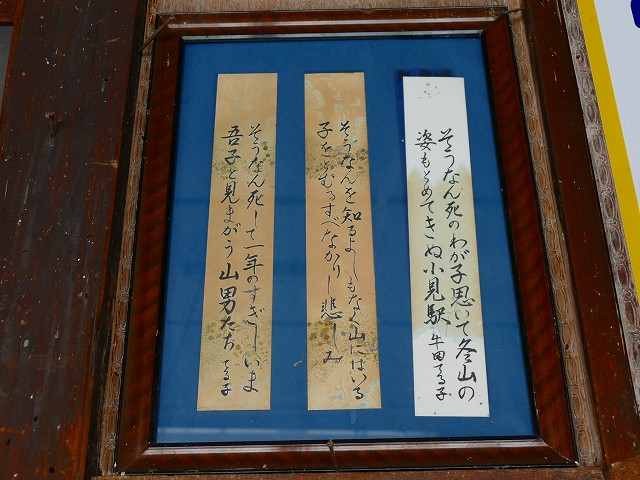 そうなん死のわが子思いて冬山の
姿もとめてきぬ小見駅 牛田てる子
そうなんを知るよしもなく山にはいる
子をとむるすべなかりし悲しみ
そうなん死して一年のすぎしいま
吾子と見まがう山男たち てる子